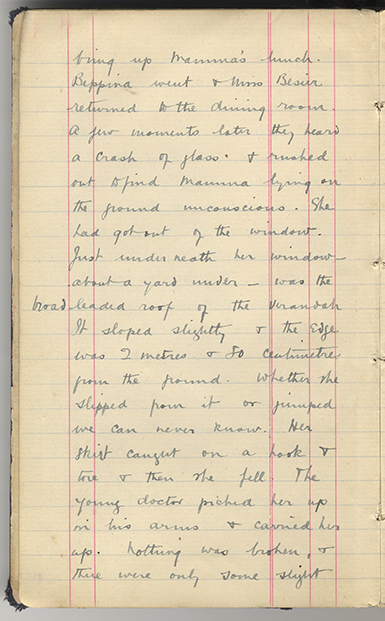 bring up Mamma's lunch.
Beppina went & Miss Besier
returned to the dining room.
A few moments later they heard
a crash of glass. & rushed
out to find Mamma lying on
the ground unconscious. She
had got out of the window.
Just underneath her window –
about a yard under – was the
broad leaded roof of the Verandah
It sloped slightly & the Edge
was 2 metres & 80 centimetres
from the ground. Whether she
slipped from it or jumped
we can never know. Her
skirt caught on a hook &
tore & then she fell. The
young doctor picked her up
in his arms & carried her
up. Nothing was broken, &
there were only some slight